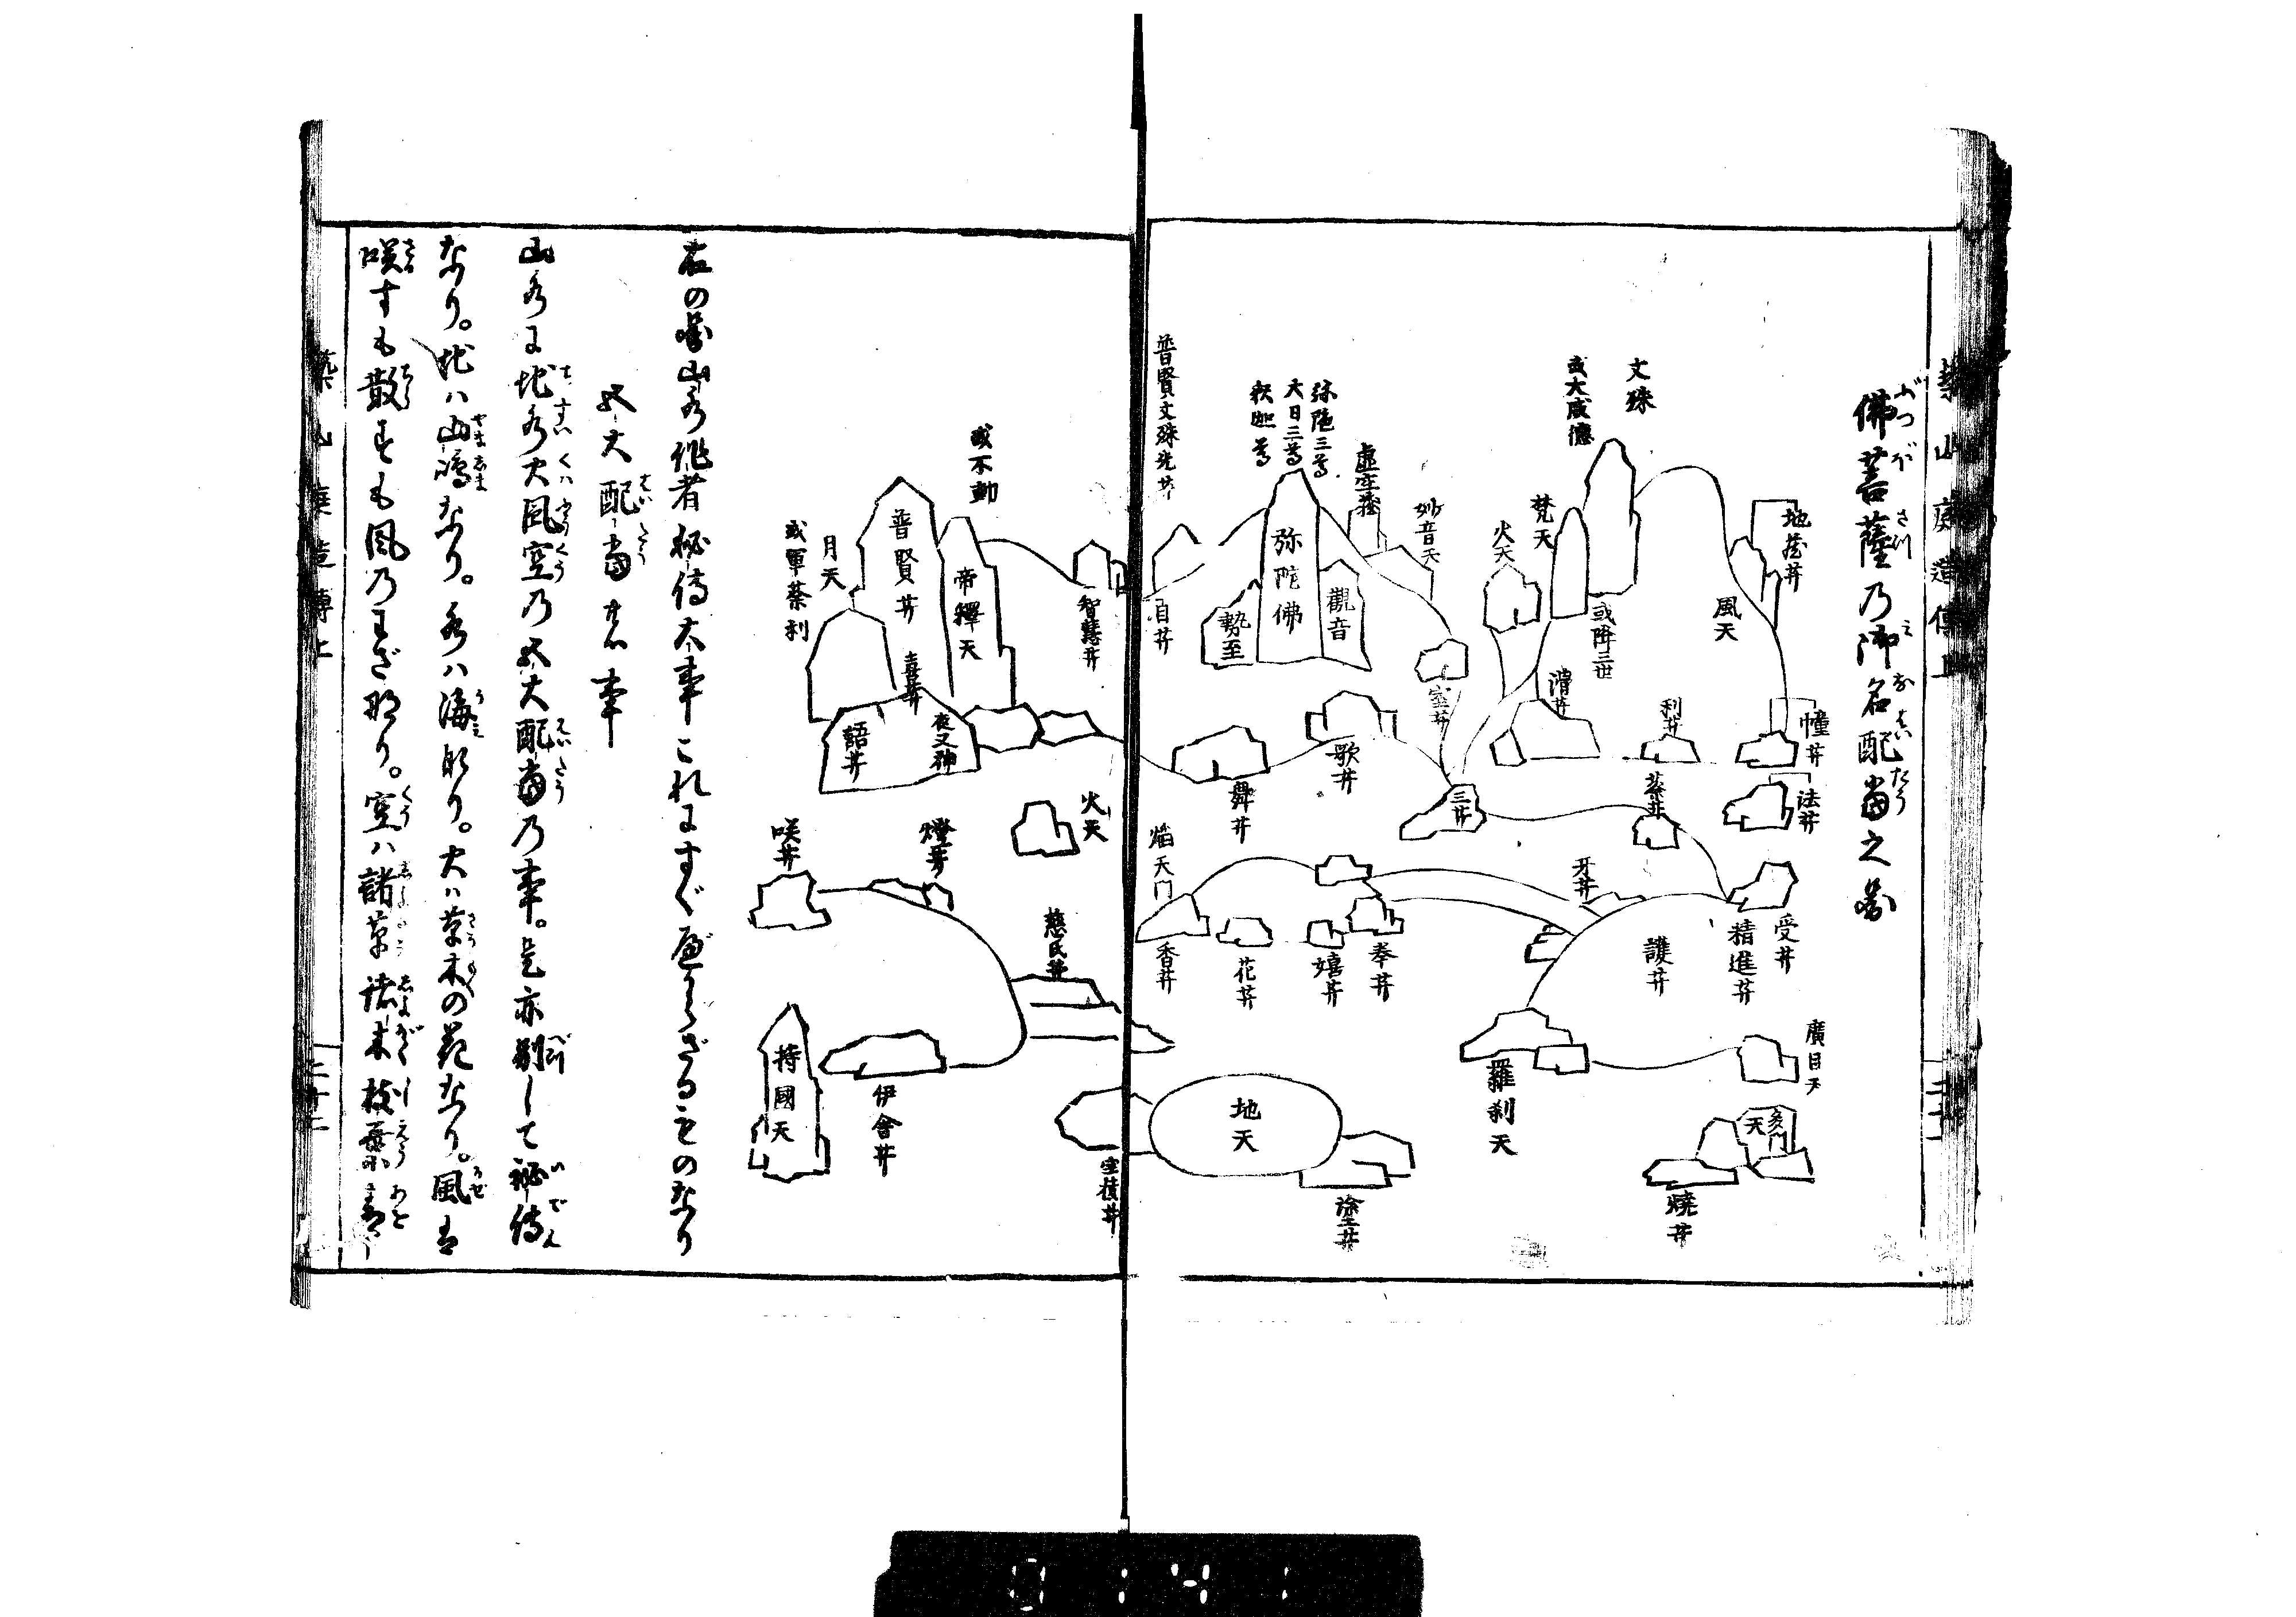 築山庭造傳上
佛菩薩乃御名配當之圖
ぶつ ぼ さつ み な はい たう
文殊
或大威德
地蔵井
風天
梵天
火天
或降三世
妙音天
虚空蔵
弥陀三尊
大日三尊
釈迦尊
弥陀佛
觀音
勢至
普賢文殊光井
幢井
利井
滑井
法井
三井
歌井
舞井
焔天門
牙井
受井
精進井
護井
奉井
嬉井
花井
香井
廣目天
羅刹天
多門天
燒井
塗井
地天
宝積井
智慧井
或不動
普賢井
帝釋天
月天
或軍荼利
喜井
夜叉神
語井
火天
燈井
咲井
慈氏井
持國天
伊舎井
右の圖山水作者秘傳大事これにすぐべからざるものなり
五大配當の事
山水に地水火風空乃五大配當乃事。是亦別して秘傳
なり。地ハ山嶋なり。水ハ海なり。火ハ草木の花なり。風は
咲すも散すも風乃わざなり。空ハ諸草諸木枝葉青
築山庭造傳上